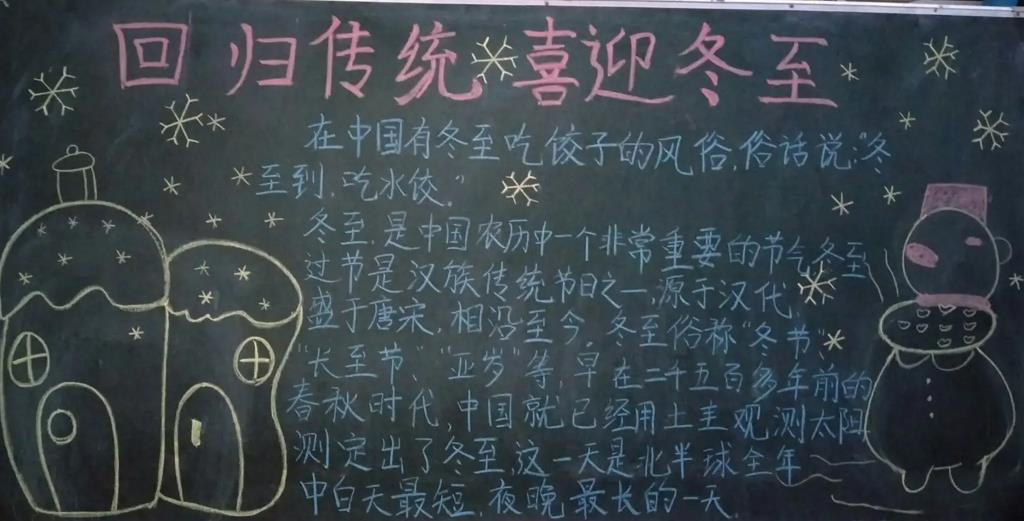 回归传统 喜迎冬至
在中国有冬至吃饺子的风俗,俗话说:"冬
至到,吃水饺."
冬至,是中国农历中一个非常重要的节气,冬至
过节是汉族传统节日之一,原于汉代,
盛于唐宋,相沿至今,冬至俗称"冬节"、
"长至节"、"亚岁"等,早在二千五百多年前的
春秋时代,中国就已经用土圭观测太阳
测定出了冬至,这一天是北半球全年
中白天最短,夜晚最长的一天.